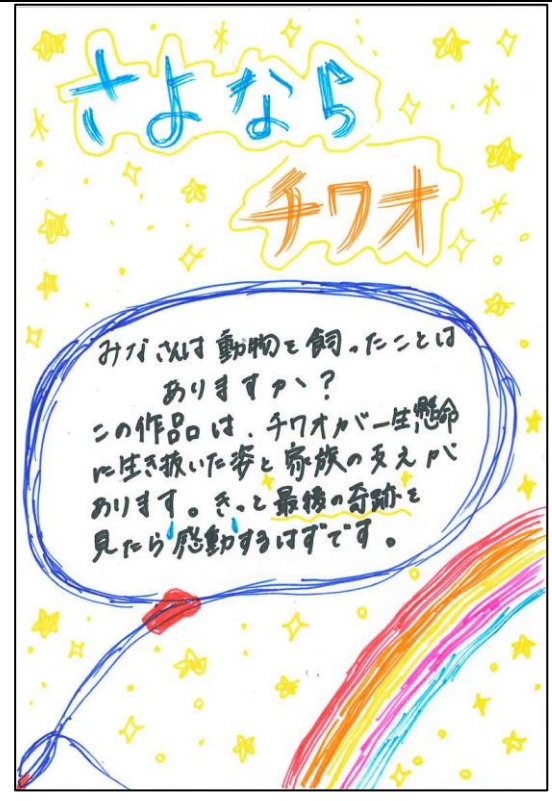 さよなら
チワオ
みなさんは動物を飼ったことは
ありますか?
この作品は、チワオが一生懸命
に生き抜いた姿と家族の支えが
あります。きっと最後の奇跡を
見たら感動するはずです。